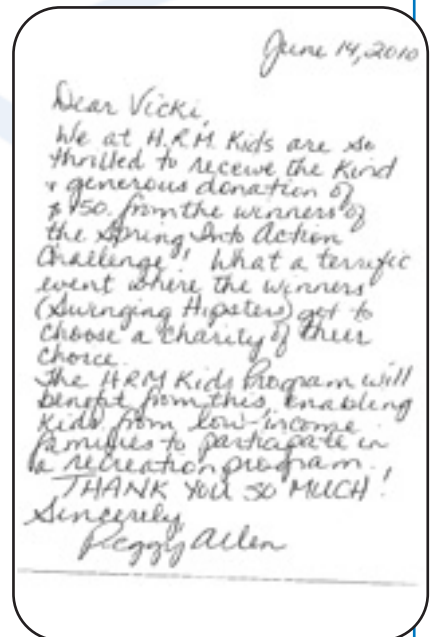 June 14, 2010
Dear Vicki,
We at H.R.M. Kids are so
thrilled to receive the kind
& generous donation of
$150. from the winners of
the Spring Into Action
Challenge! What a terrific
event where the winners
(Swinging Hipsters) get to
choose a charity of their
choice.
The HRM Kids Program will
benefit from this, enabling
kids from low-income
families to participate in
a recreation program.
THANK YOU SO MUCH!
Sincerely,
Peggy Allen